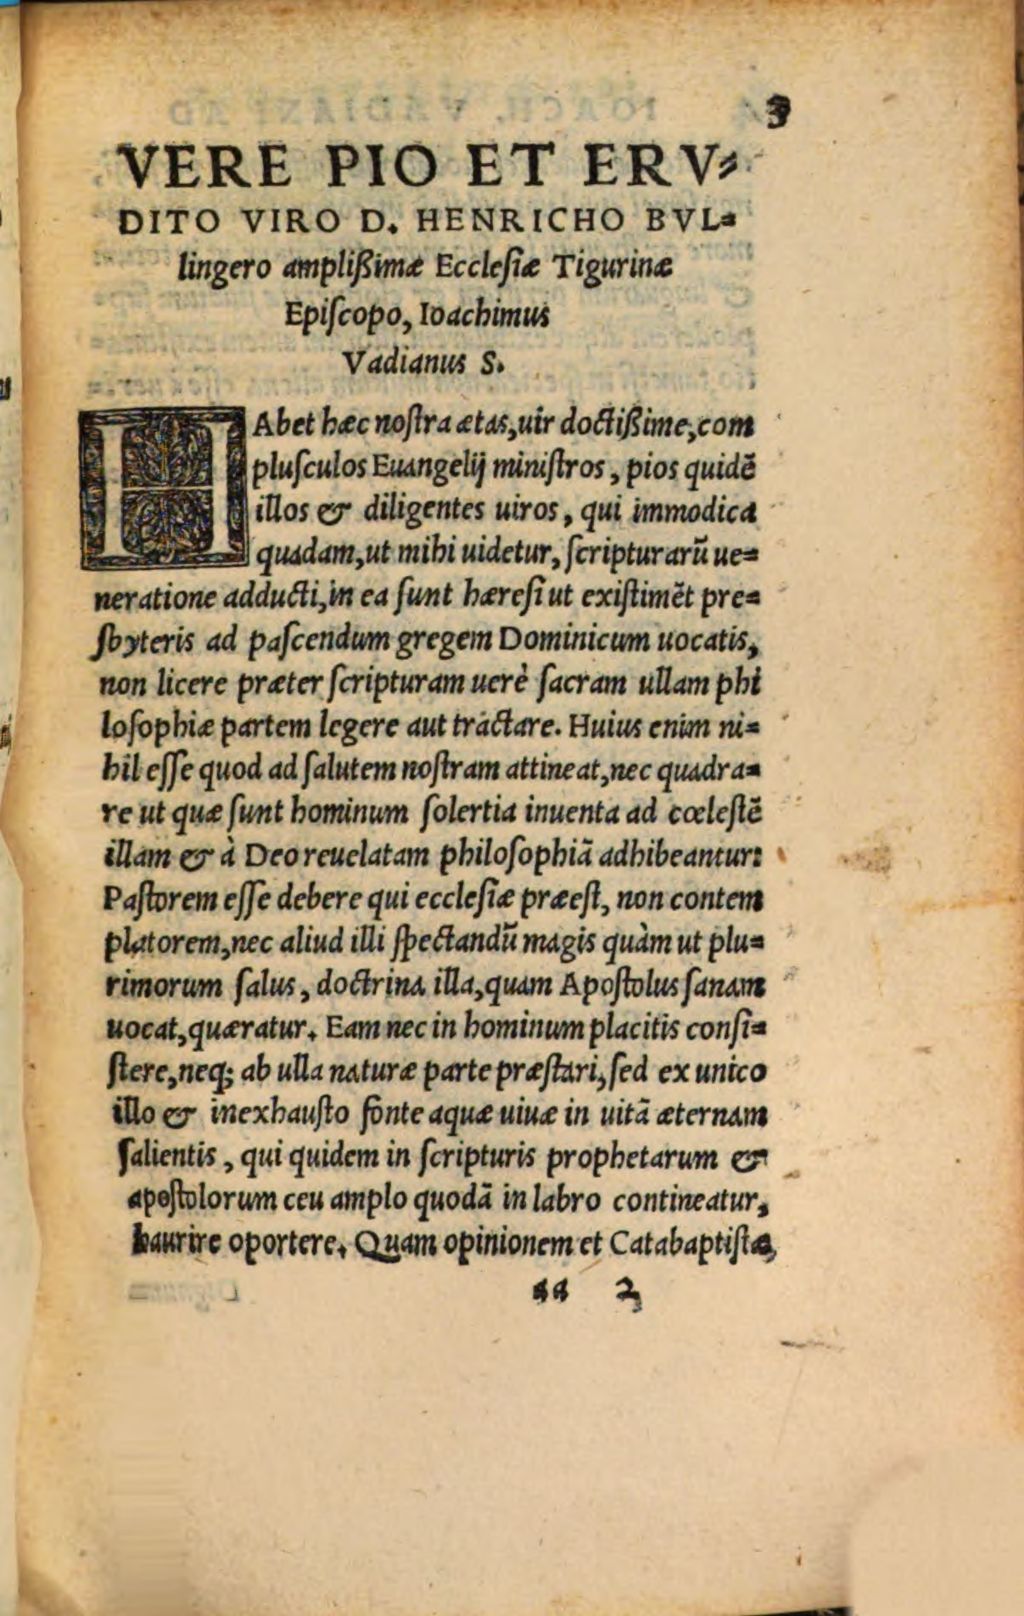 3
VERE PIO ET ERV⸗
DITO VIRO D. HENRICHO BVL⸗
lingero ampliſsimæ Eccleſiæ Tigurinæ
Epiſcopo, Ioachimus
Vadianus S.
HAbet hæc noſtra ætas, uir doctiſsime, com
pluſculos Euangelij miniſtros, pios quidẽ
illos & diligentes uiros, qui immodica
quadam, ut mihi uidetur, ſcripturarũ ue⸗
neratione adducti, in ea ſunt hæreſi ut exiſtimẽt pre⸗
ſbyteris ad paſcendum gregem Dominicum uocatis,
non licere præter ſcripturam uerè ſacram ullam phi
loſophiæ partem legere aut tractare. Huius enim ni⸗
hil eſſe quod ad ſalutem noſtram attineat, nec quadra⸗
re ut quæ ſunt hominum ſolertia inuenta ad cœleſtẽ
illam & à Deo reuelatam philoſophiã adhibeantur:
Paſtorem eſſe debere qui eccleſiæ præeſt, non contem
platorem, nec aliud illi ſpectandũ magis quàm ut plu⸗
rimorum ſalus, doctrina illa, quam Apoſtolus ſanam
uocat, quæratur. Eam nec in hominum placitis conſi⸗
ſtere, neq; ab ulla naturæ parte præſtari, ſed ex unico
illo & inexhauſto fonte aquæ uiuæ in uitã æternam
ſalientis, qui quidem in ſcripturis prophetarum &
apoſtolorum ceu amplo quodã in labro contineatur,
haurire oportere. Quam opinionem et Catabaptiſtæ,
aa 2